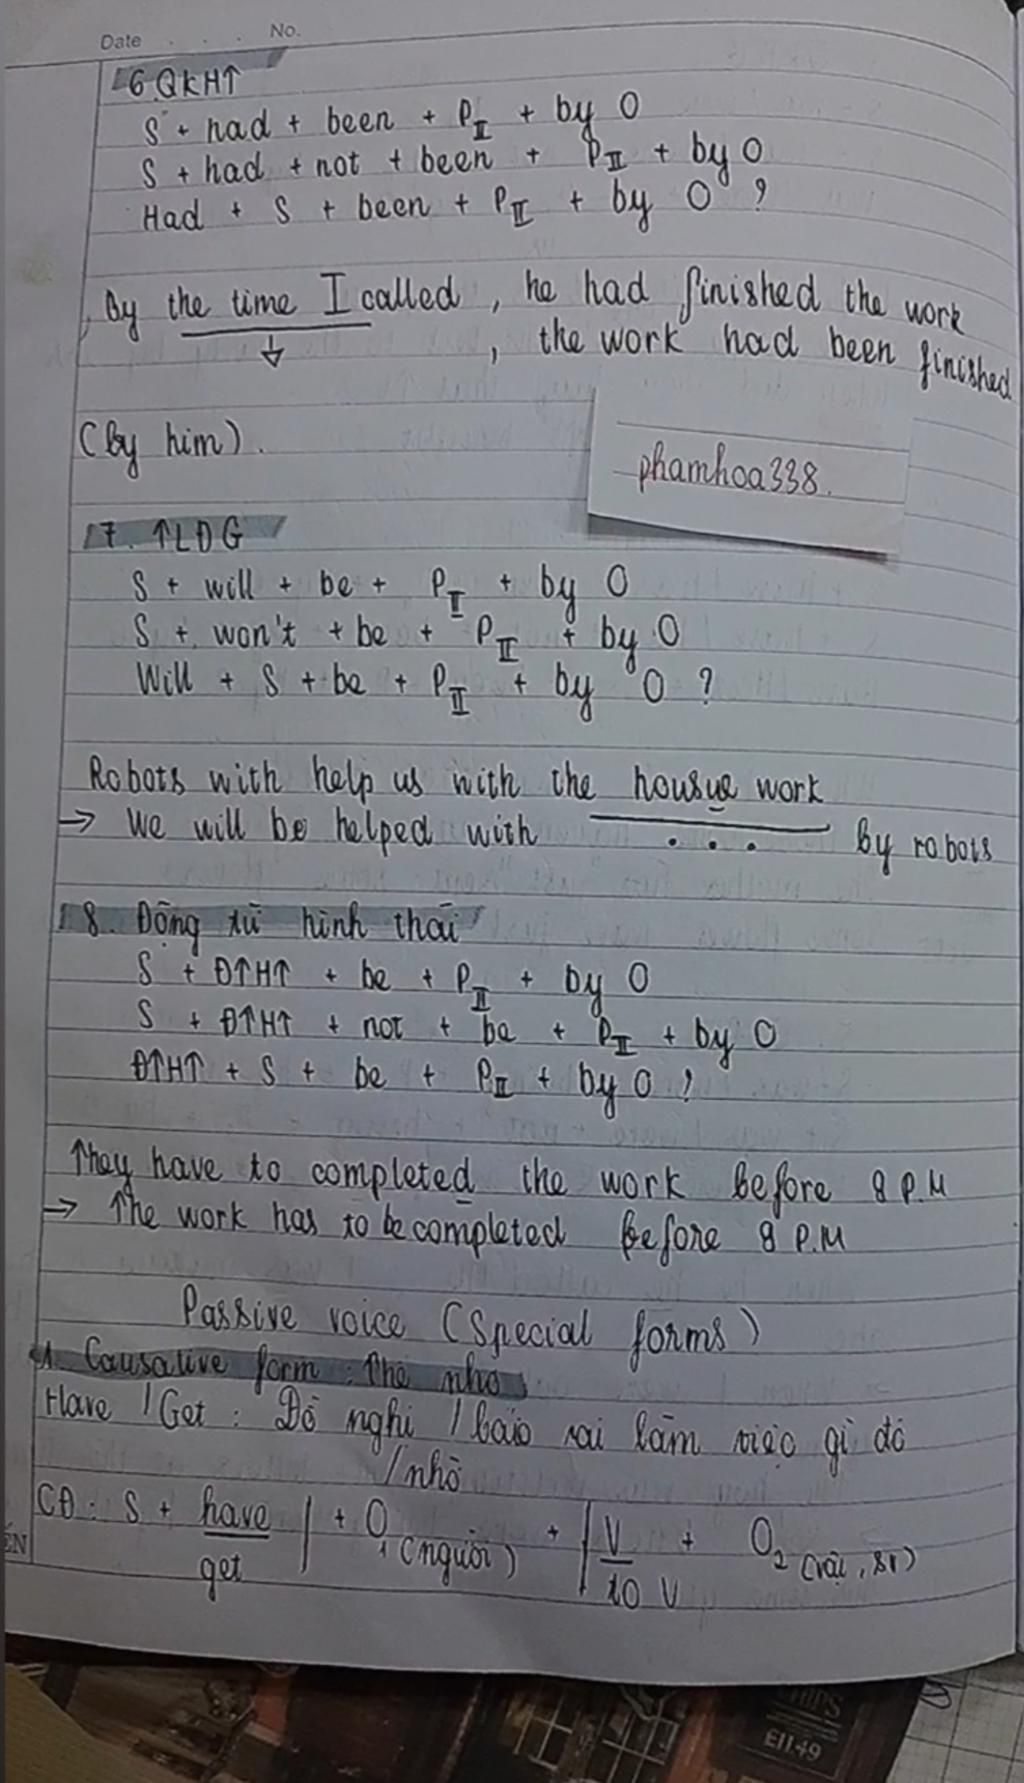 Date . . . No.
6. QKHT
S + had + been + PII + by O
S + had + not + been + PII + by O
Had + S + been + PII + by O ?
, By the time I called, he had finished the work
, the work had been finished
(by him).
phamhoa338.
7. TLĐG
S + will + be + PII + by O
S + won't + be + PII + by O
Will + S + be + PII + by O ?
Robots with help us with the housue work
→ We will be helped with . . . by robots
8. Động từ hình thái
S + ĐTHT + be + PII + by O
S + ĐTHT + not + be + PII + by O
ĐTHT + S + be + PII + by O ?
They have to completed the work before 8 P.M
→ The work has to be completed before 8 P.M
Passive voice (Special forms)
1. Causative form : Thể nhờ
Have / Get : Đề nghị / bảo ai làm việc gì đó
/ nhờ
CĐ : S + have | + O1 (người) + | V + O2 (vật, sv)
get to V
ẾN
EII49